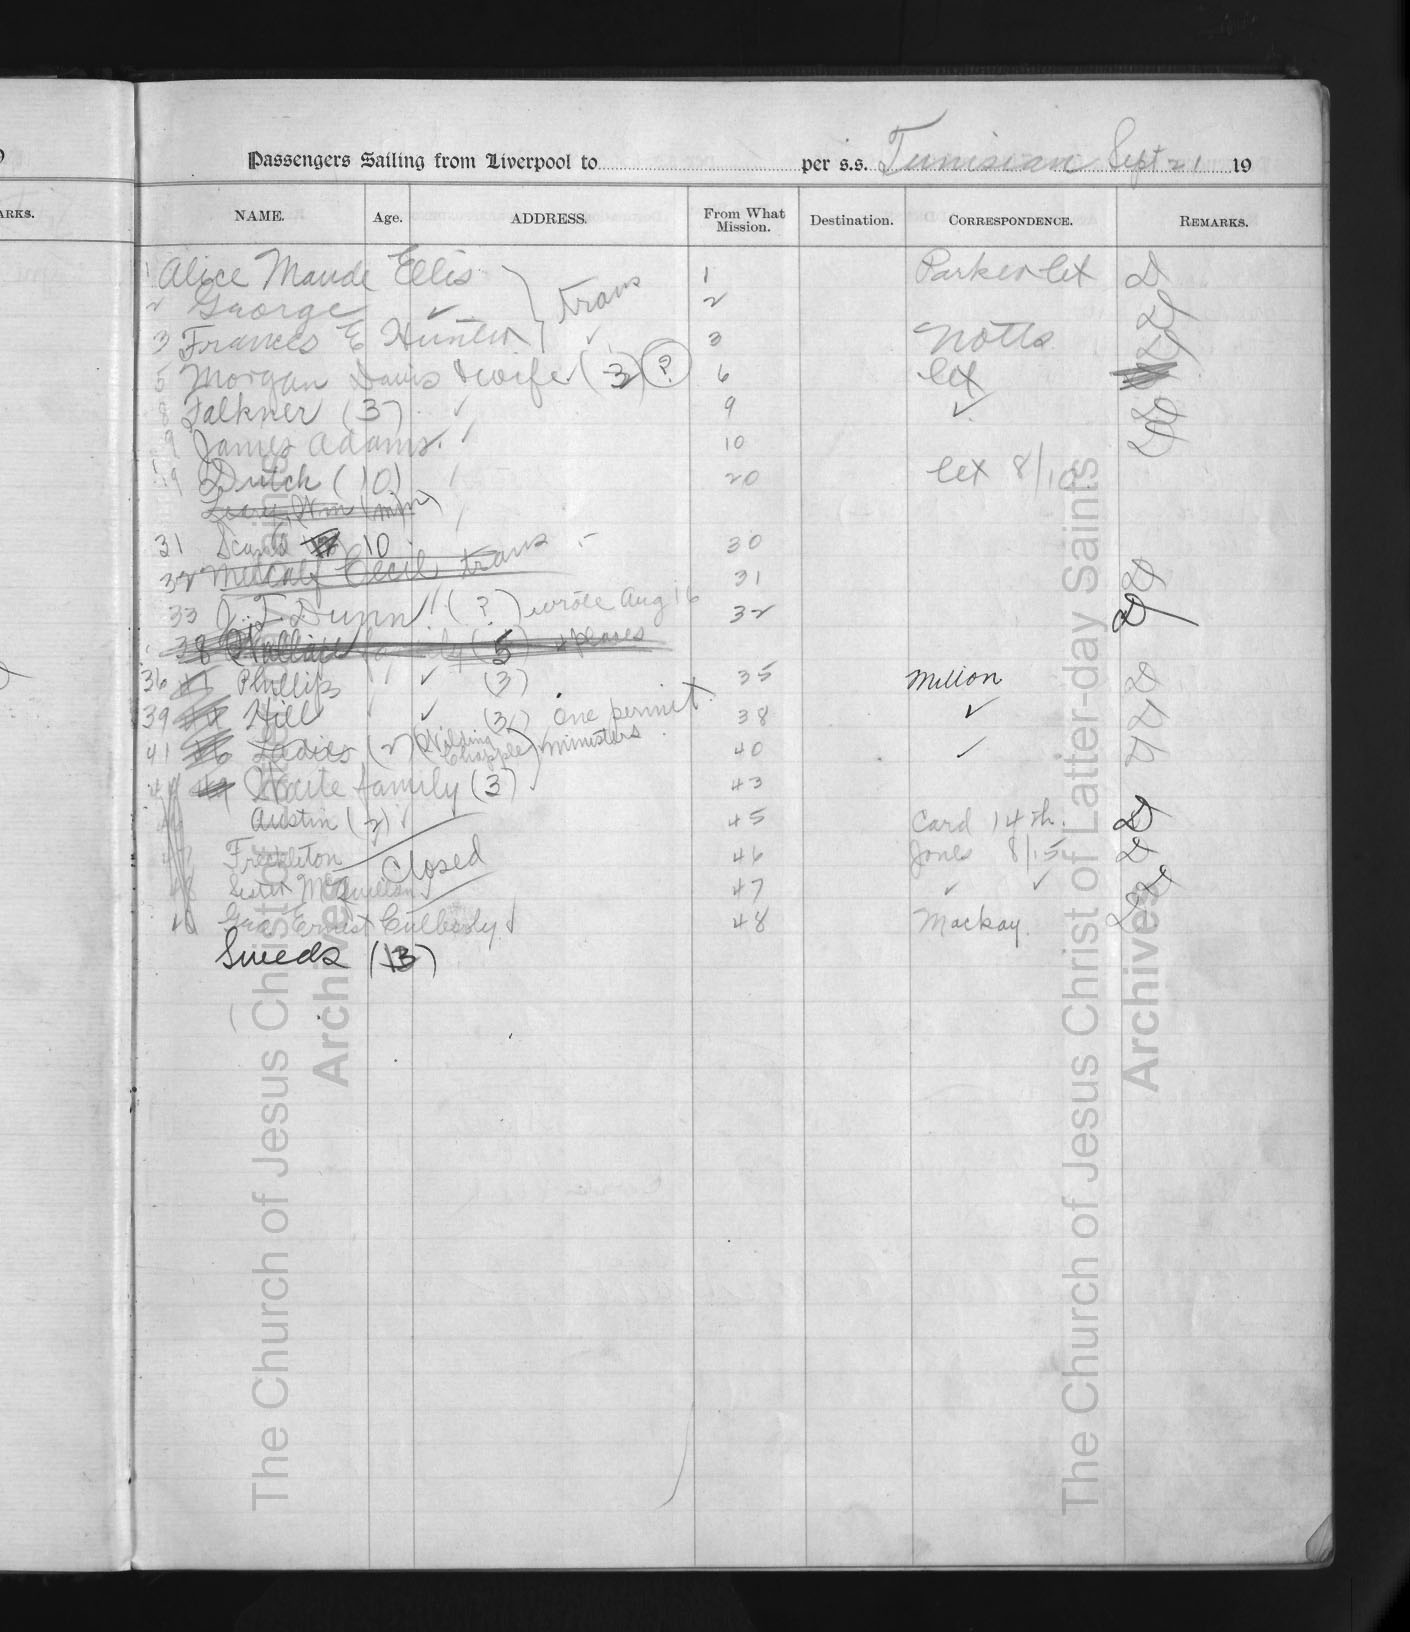 Passengers Sailing from Liverpool to per s.s. Tunisian Sept 21 19
ARKS.
NAME. Age. ADDRESS. From What Mission. Destination. CORRESPONDENCE. REMARKS.
1 Alice Maude Ellis 1 Parker let D
2 George ✓ trans 2
3 Frances E Hunter ✓ 3 Notts
5 Morgan Davis & wife (3) ? 6 let
8 Falkner (3) ✓ 9 ✓
9 James Adams ✓ 10
19 Dutch (10) 20 let 8/10
Wm
31 Scand 10 30
32 Metcalf Cecil trans 31
33 J. T. Dunn (?) wrote Aug 16 32
38 Wallace family (5)
36 Phillips ✓ (3) 35 Millon
39 Hill ✓ (3) one permit 38 ✓
41 46 Ladies (2) ministers 40 ✓
Waite family (3) 43
Austin (2) 45 Card 14th. D
Freckleton Closed 46 Jones 8/15
48 Sister McQuillan 47 ✓ ✓
Geo. Ernest 48 Mackay.
Sweeds (13)
The Church of Jesus Christ of Latter-day Saints
Archives
The Church of Jesus Christ of Latter-day Saints
Archives